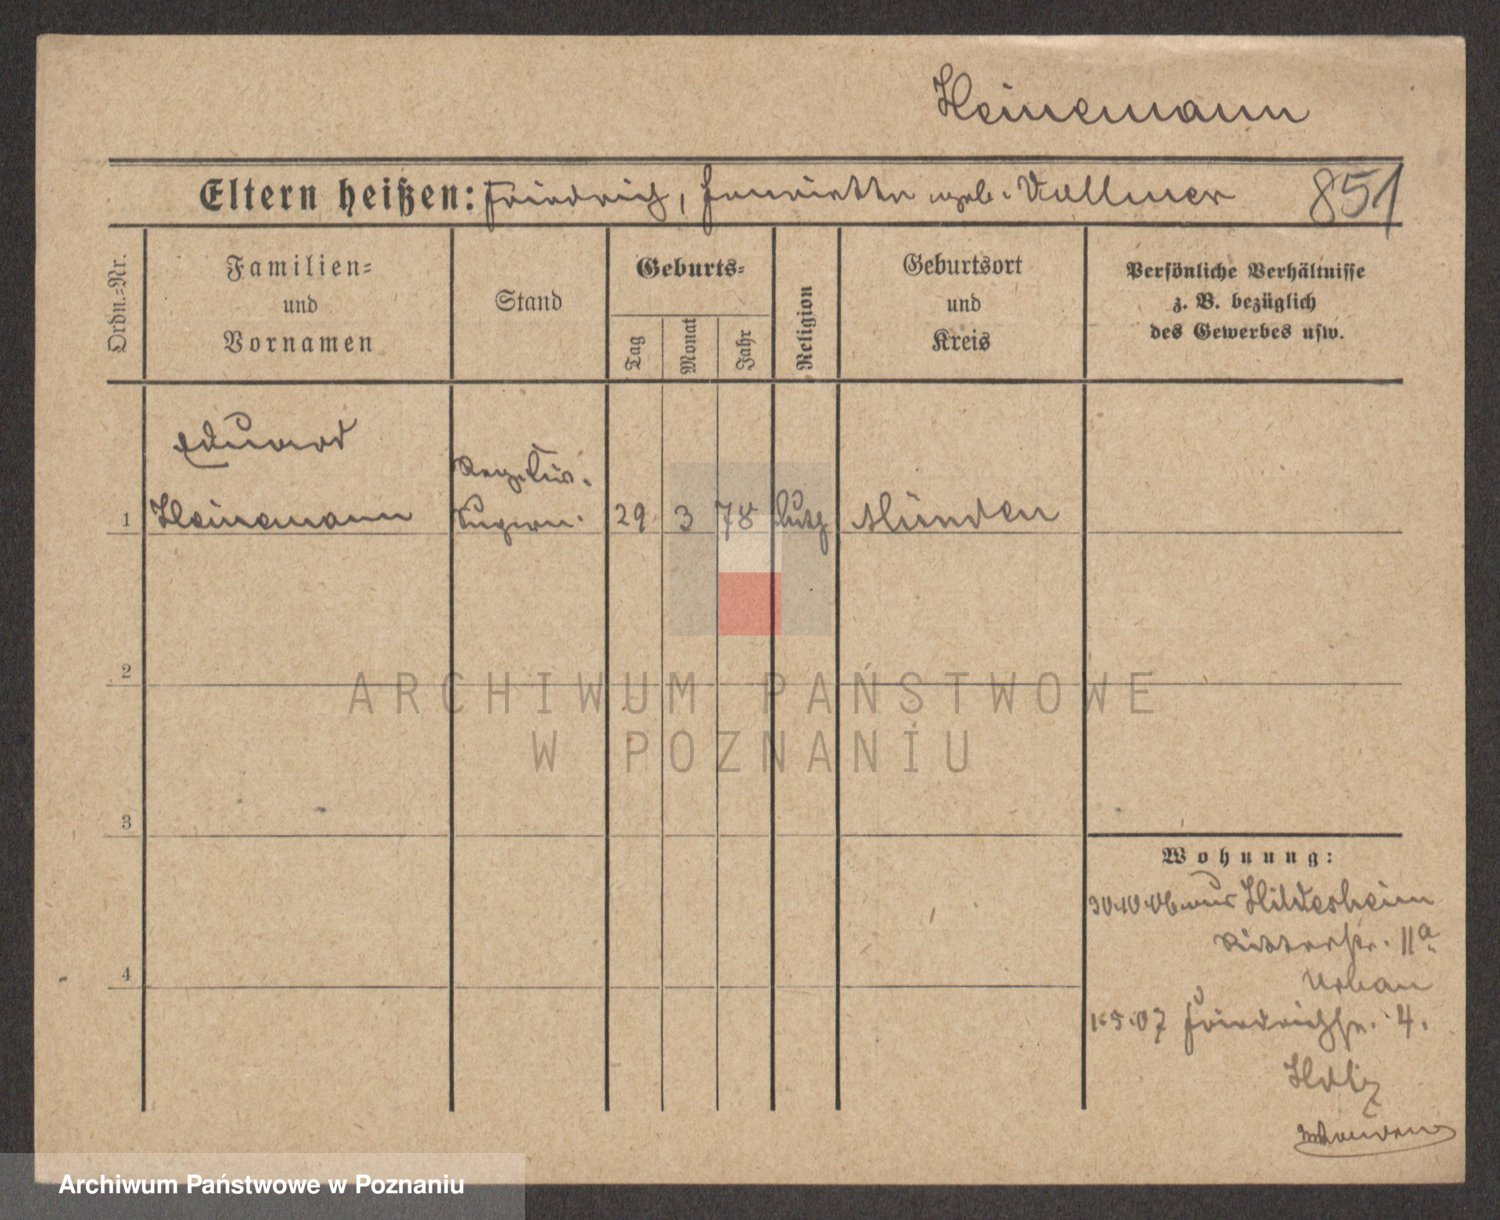 Heinemann
Eltern heißen: Friedrich, Henriette geb. Vollmer 851
Ordn.=Nr.
Familien=
und
Vornamen
Stand
Geburts=
Tag
Monat
Jahr
Religion
Geburtsort
und
Kreis
Persönliche Verhältnisse
z. B. bezüglich
des Gewerbes usw.
Eduard
1 Heinemann
29 3 78 luth Münden
2
3
4
Wohnung:
30.10.06 aus Hildesheim
Ritterstr. 11a
Urban
1.5.07 Friedrichstr. 4.
ARCHIWUM PAŃSTWOWE
W POZNANIU
Archiwum Państwowe w Poznaniu